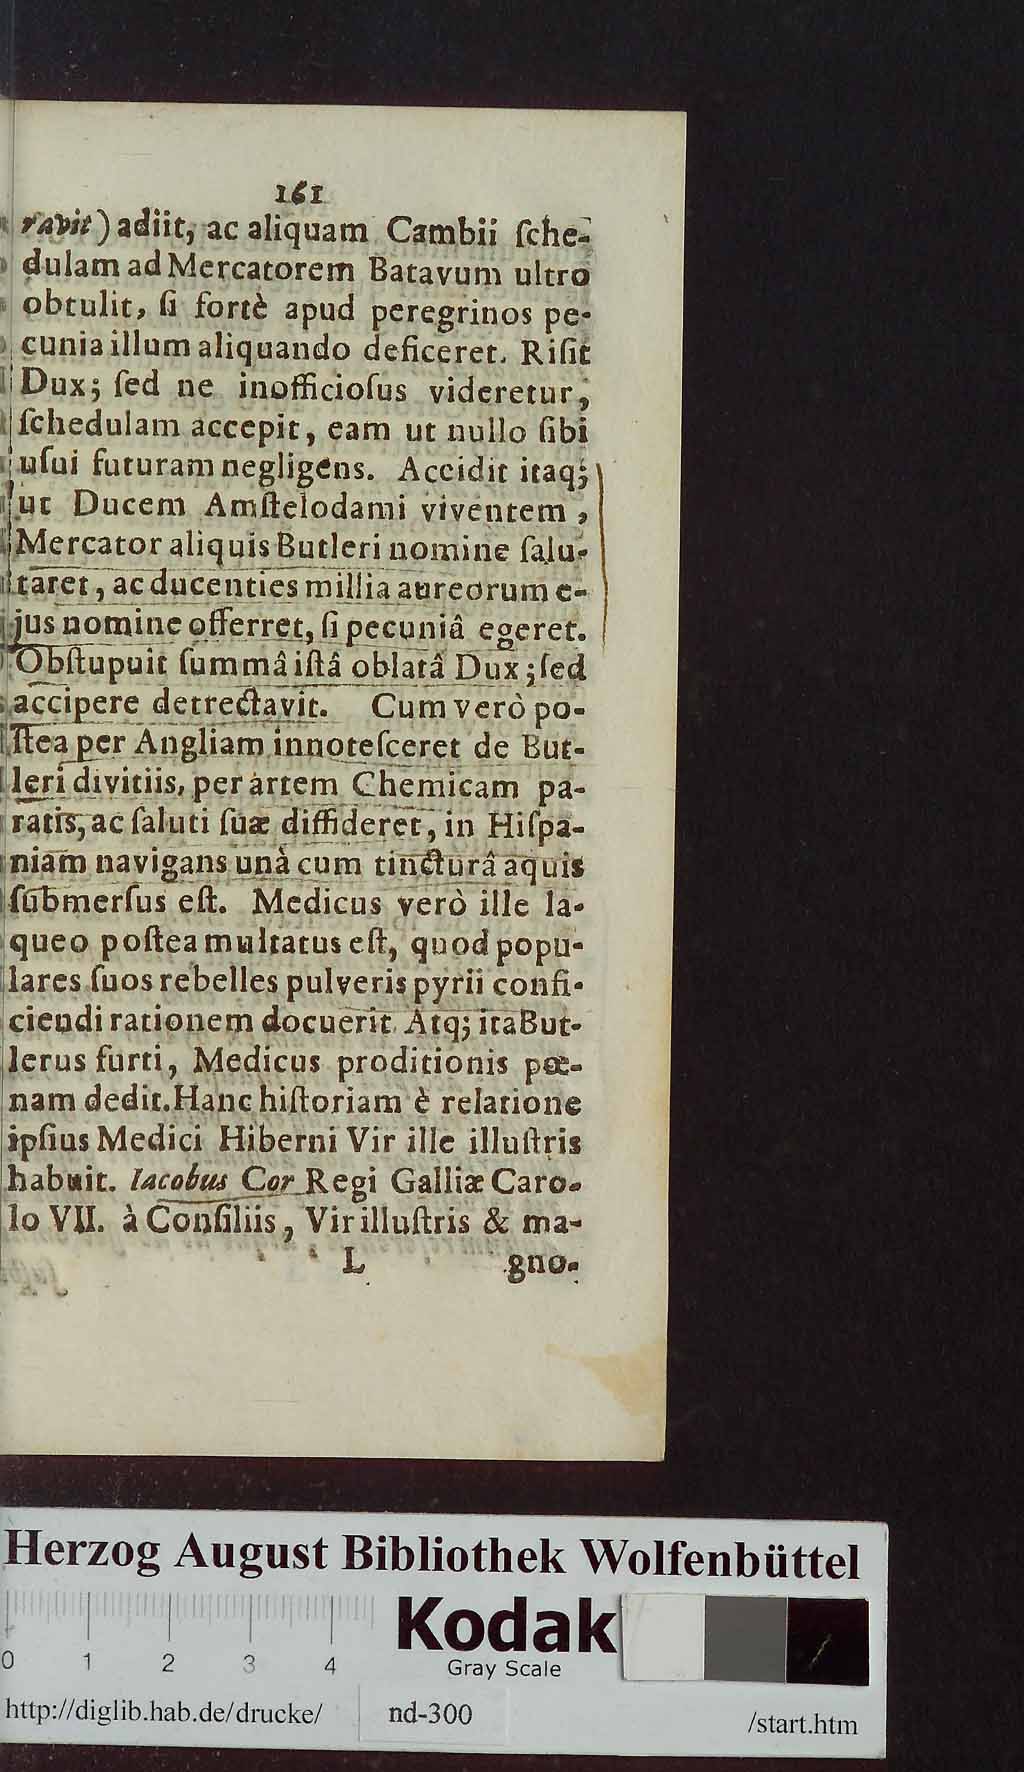 161
ravit) adiit, ac aliquam Cambii ſche-
dulam ad Mercatorem Batavum ultro
obtulit, ſi fortè apud peregrinos pe-
cunia illum aliquando deficeret. Riſit
Dux; ſed ne inofficioſus videretur,
ſchedulam accepit, eam ut nullo ſibi
uſui futuram negligens. Accidit itaq;
ut Ducem Amſtelodami viventem,
Mercator aliquis Butleri nomine ſalu-
taret, ac ducenties millia aureorum e-
jus nomine offerret, ſi pecuniâ egeret.
Obſtupuit ſummâ iſtâ oblatâ Dux; ſed
accipere detrectavit. Cum verò po-
ſtea per Angliam innoteſceret de But-
leri divitiis, per artem Chemicam pa-
ratis, ac ſaluti ſuæ diffideret, in Hiſpa-
niam navigans unà cum tincturâ aquis
ſubmerſus eſt. Medicus verò ille la-
queo poſtea multatus eſt, quod popu-
lares ſuos rebelles pulveris pyrii confi-
ciendi rationem docuerit. Atq; ita But-
lerus furti, Medicus proditionis pœ-
nam dedit. Hanc hiſtoriam è relatione
ipſius Medici Hiberni Vir ille illuſtris
habuit. Iacobus Cor Regi Galliæ Caro-
lo VII. à Conſiliis, Vir illuſtris & ma-
L gno-
Herzog August Bibliothek Wolfenbüttel
Kodak
Gray Scale
0 1 2 3 4
http://diglib.hab.de/drucke/ nd-300 /start.htm